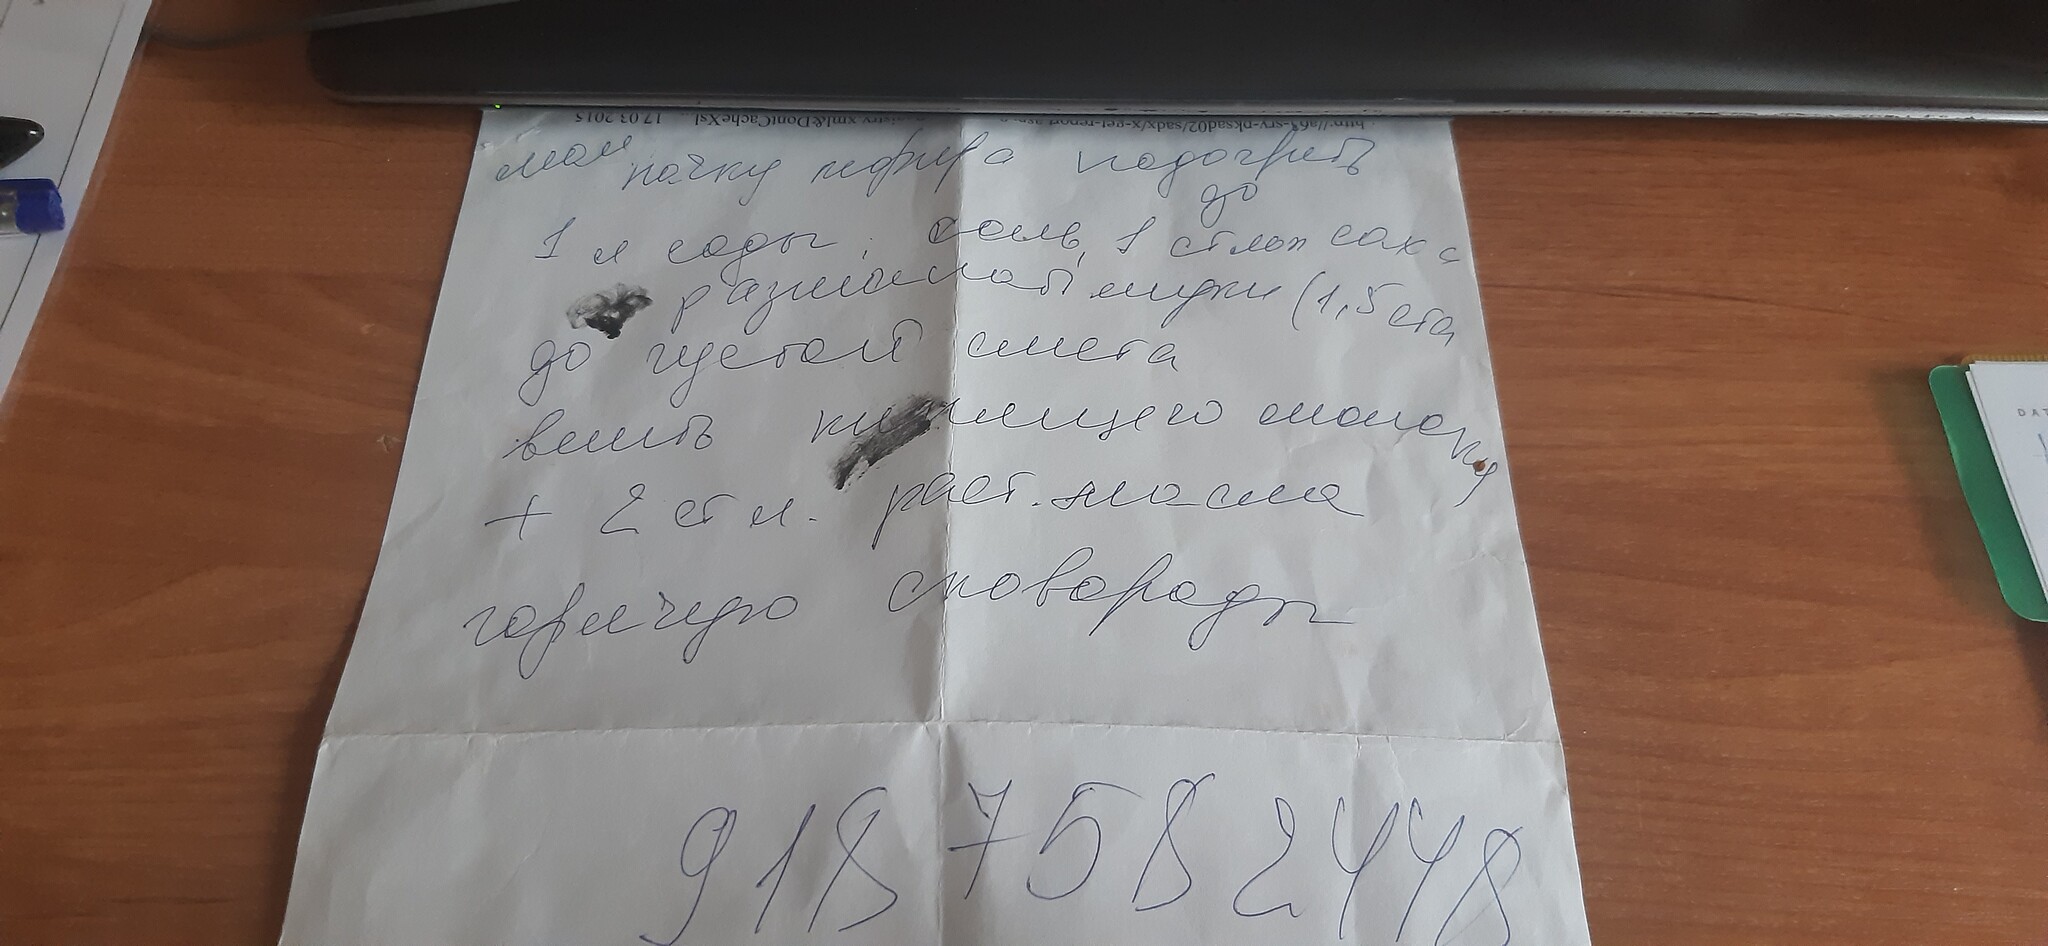 http://a63-srv-pksad02/sadx/x-get-report.asp
registry.xml&DontCacheXsl... 17.03.2015
пачку кефира подогреть
до
1 л соды, соль, 1 ст лож сах
размешать муки (1,5 ста
до густой смета
влить кипящего молока
+ 2 ст л. раст. масла
горячую сковороды
918 758 2448
DAT